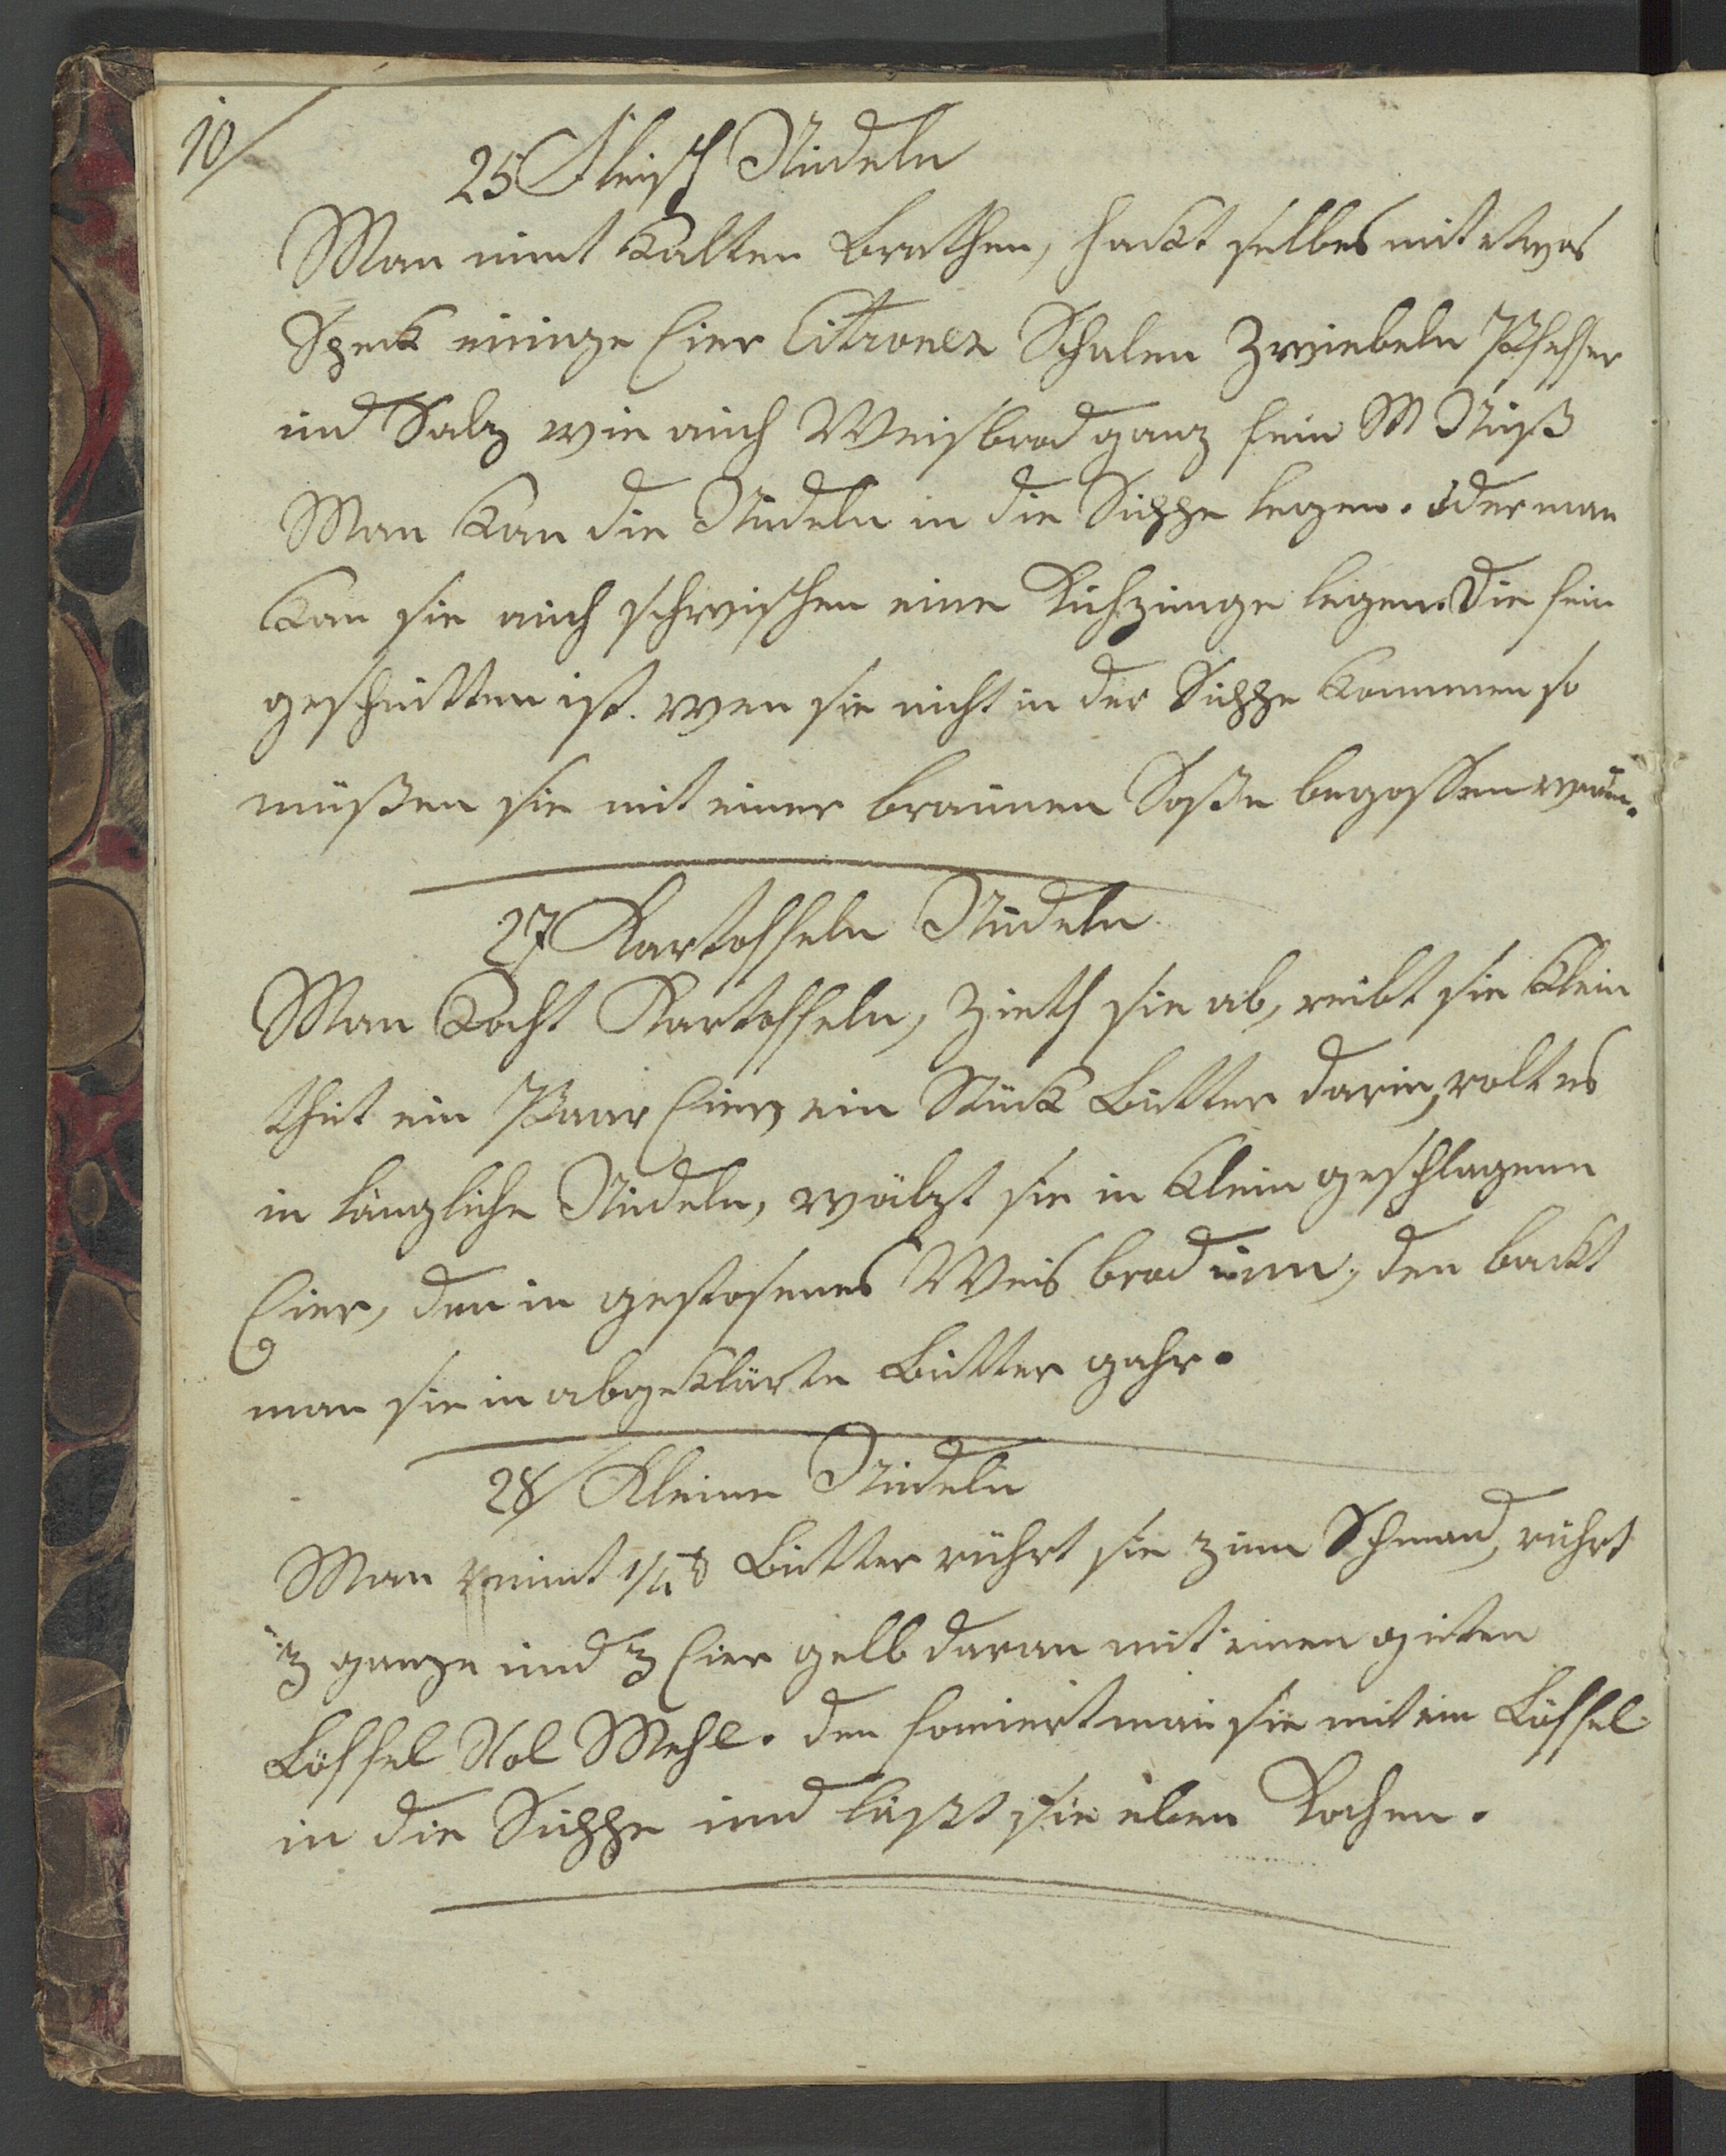 10/
25 Fleisch Nudeln
Man nimt kalten Brathen, hackt selbes mit etwas
Speck einige Eier Citronen Schalen Zwiebeln Pfeffer
und Salz wie auch Weisbrod ganz fein M Nuß
Man kan die Nudeln in die Suppe legen. oder man
kan sie auch schwischen eine Kuhzunge legen. Die fein
geschnitten ist. wen sie nicht in der Suppe kommen so
müßen sie mit einer braunen Soße begossen werden.
27 Kartoffeln Nudeln
Man kocht Kartoffeln, zieth sie ab, reibt sie klein
thut ein Paar Eier, ein Stück Butter darin, rolt es
in längliche Nudeln, wälzt sie in klein geschlagenen
Eier, den in gestosenes Weis brod um, den backt
man sie in abgeklärte Butter gahr.
28/ Kleine Nudeln
Man nimt 1/4 ℔ Butter rührt sie zum Schmand, rührt
3 ganze und 3 Eier gelb daran mit einen guten
Löffel Vol Mehl. den formiert man sie mit ein Löffel
in die Suppe und läßt sie eben kochen.